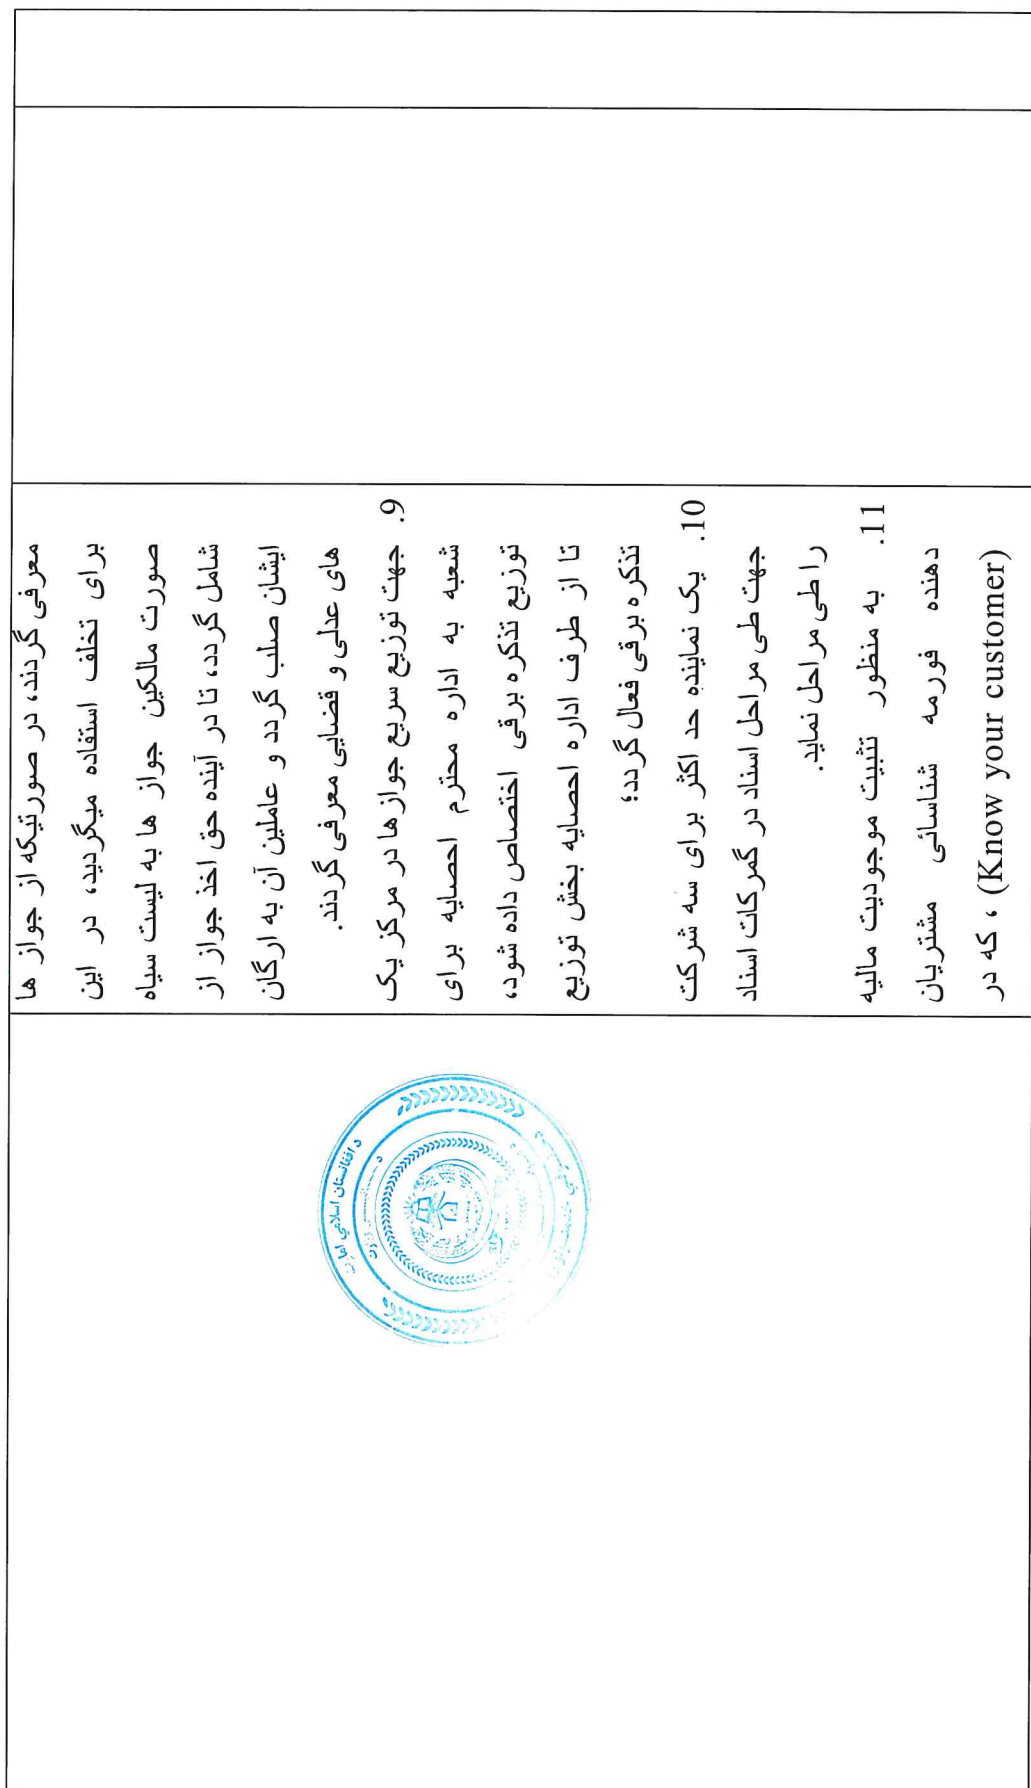 معرفی گردند، در صورتیکه از جواز ها
برای تخلف استفاده میگردید، در این
صورت مالکین جواز ها به لیست سیاه
شامل گردد، تا در آینده حق اخذ جواز از
ایشان صلب گردد و عاملین آن به ارگان
های عدلی و قضایی معرفی گردند.
9. جهت توزیع سریع جوازها در مرکز یک
شعبه به اداره محترم احصایه برای
توزیع تذکره برقی اختصاص داده شود،
تا از طرف اداره احصایه بخش توزیع
تذکره برقی فعال گردد؛
10. یک نماینده حد اکثر برای سه شرکت
جهت طی مراحل اسناد در گمرکات اسناد
را طی مراحل نماید.
11. به منظور تثبیت موجودیت مالیه
دهنده فورمه شناسائی مشتریان
(Know your customer) ، که در
د افغانستان اسلامي امارت